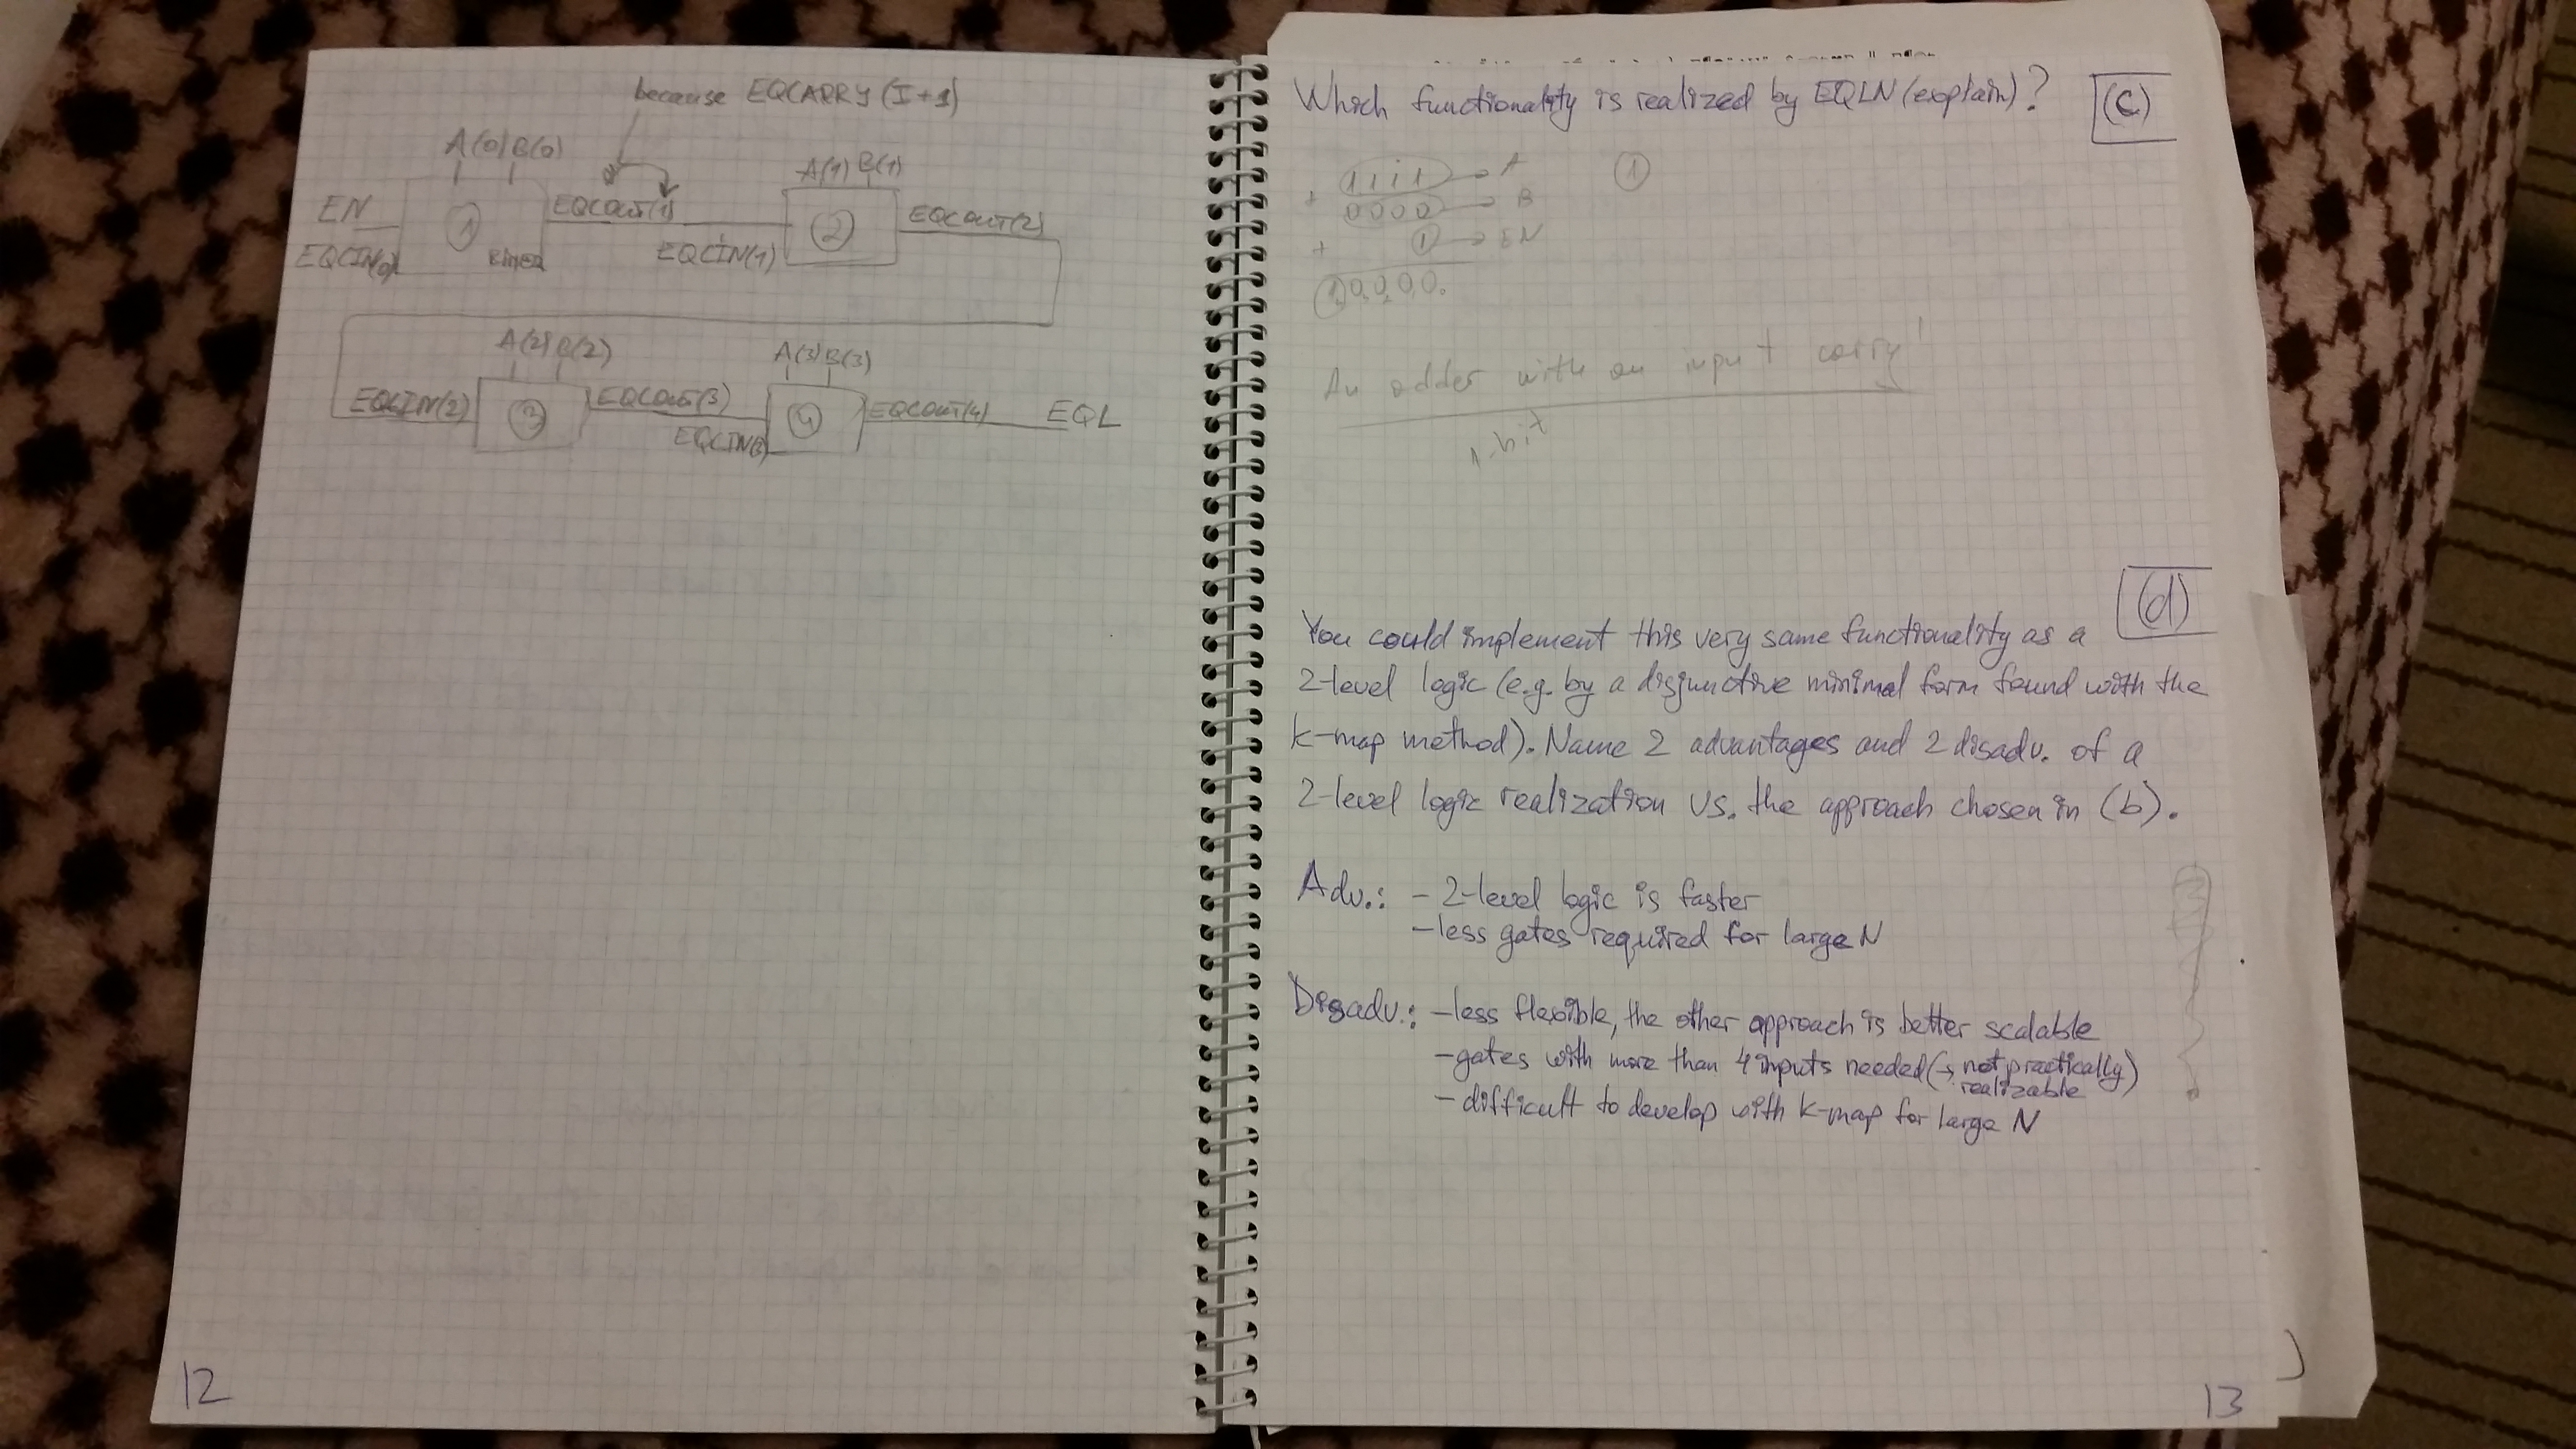 because EQCARRY (I+1)
A(0) B(0)
A(1) B(1)
EN
EQCOUT(1)
EQCOUT(2)
1
2
EQCIN(0)
EQCIN(1)
A(2) B(2)
A(3) B(3)
EQCIN(2)
EQCOUT(3)
EQCOUT(4)
EQL
3
4
EQCIN(3)
12
Which functionality is realized by EQLN (explain)?
(c)
1111 → A
1
+ 0000 → B
+ 1 → EN
10000
An adder with an input carry!
1-bit
(d)
You could implement this very same functionality as a
2-level logic (e.g. by a disjunctive minimal form found with the
k-map method). Name 2 advantages and 2 disadv. of a
2-level logic realization vs. the approach chosen in (b).
Adv.: - 2-level logic is faster
- less gates required for large N
Disadv.: - less flexible, the other approach is better scalable
- gates with more than 4 inputs needed (→ not practically
realizable)
- difficult to develop with k-map for large N
13